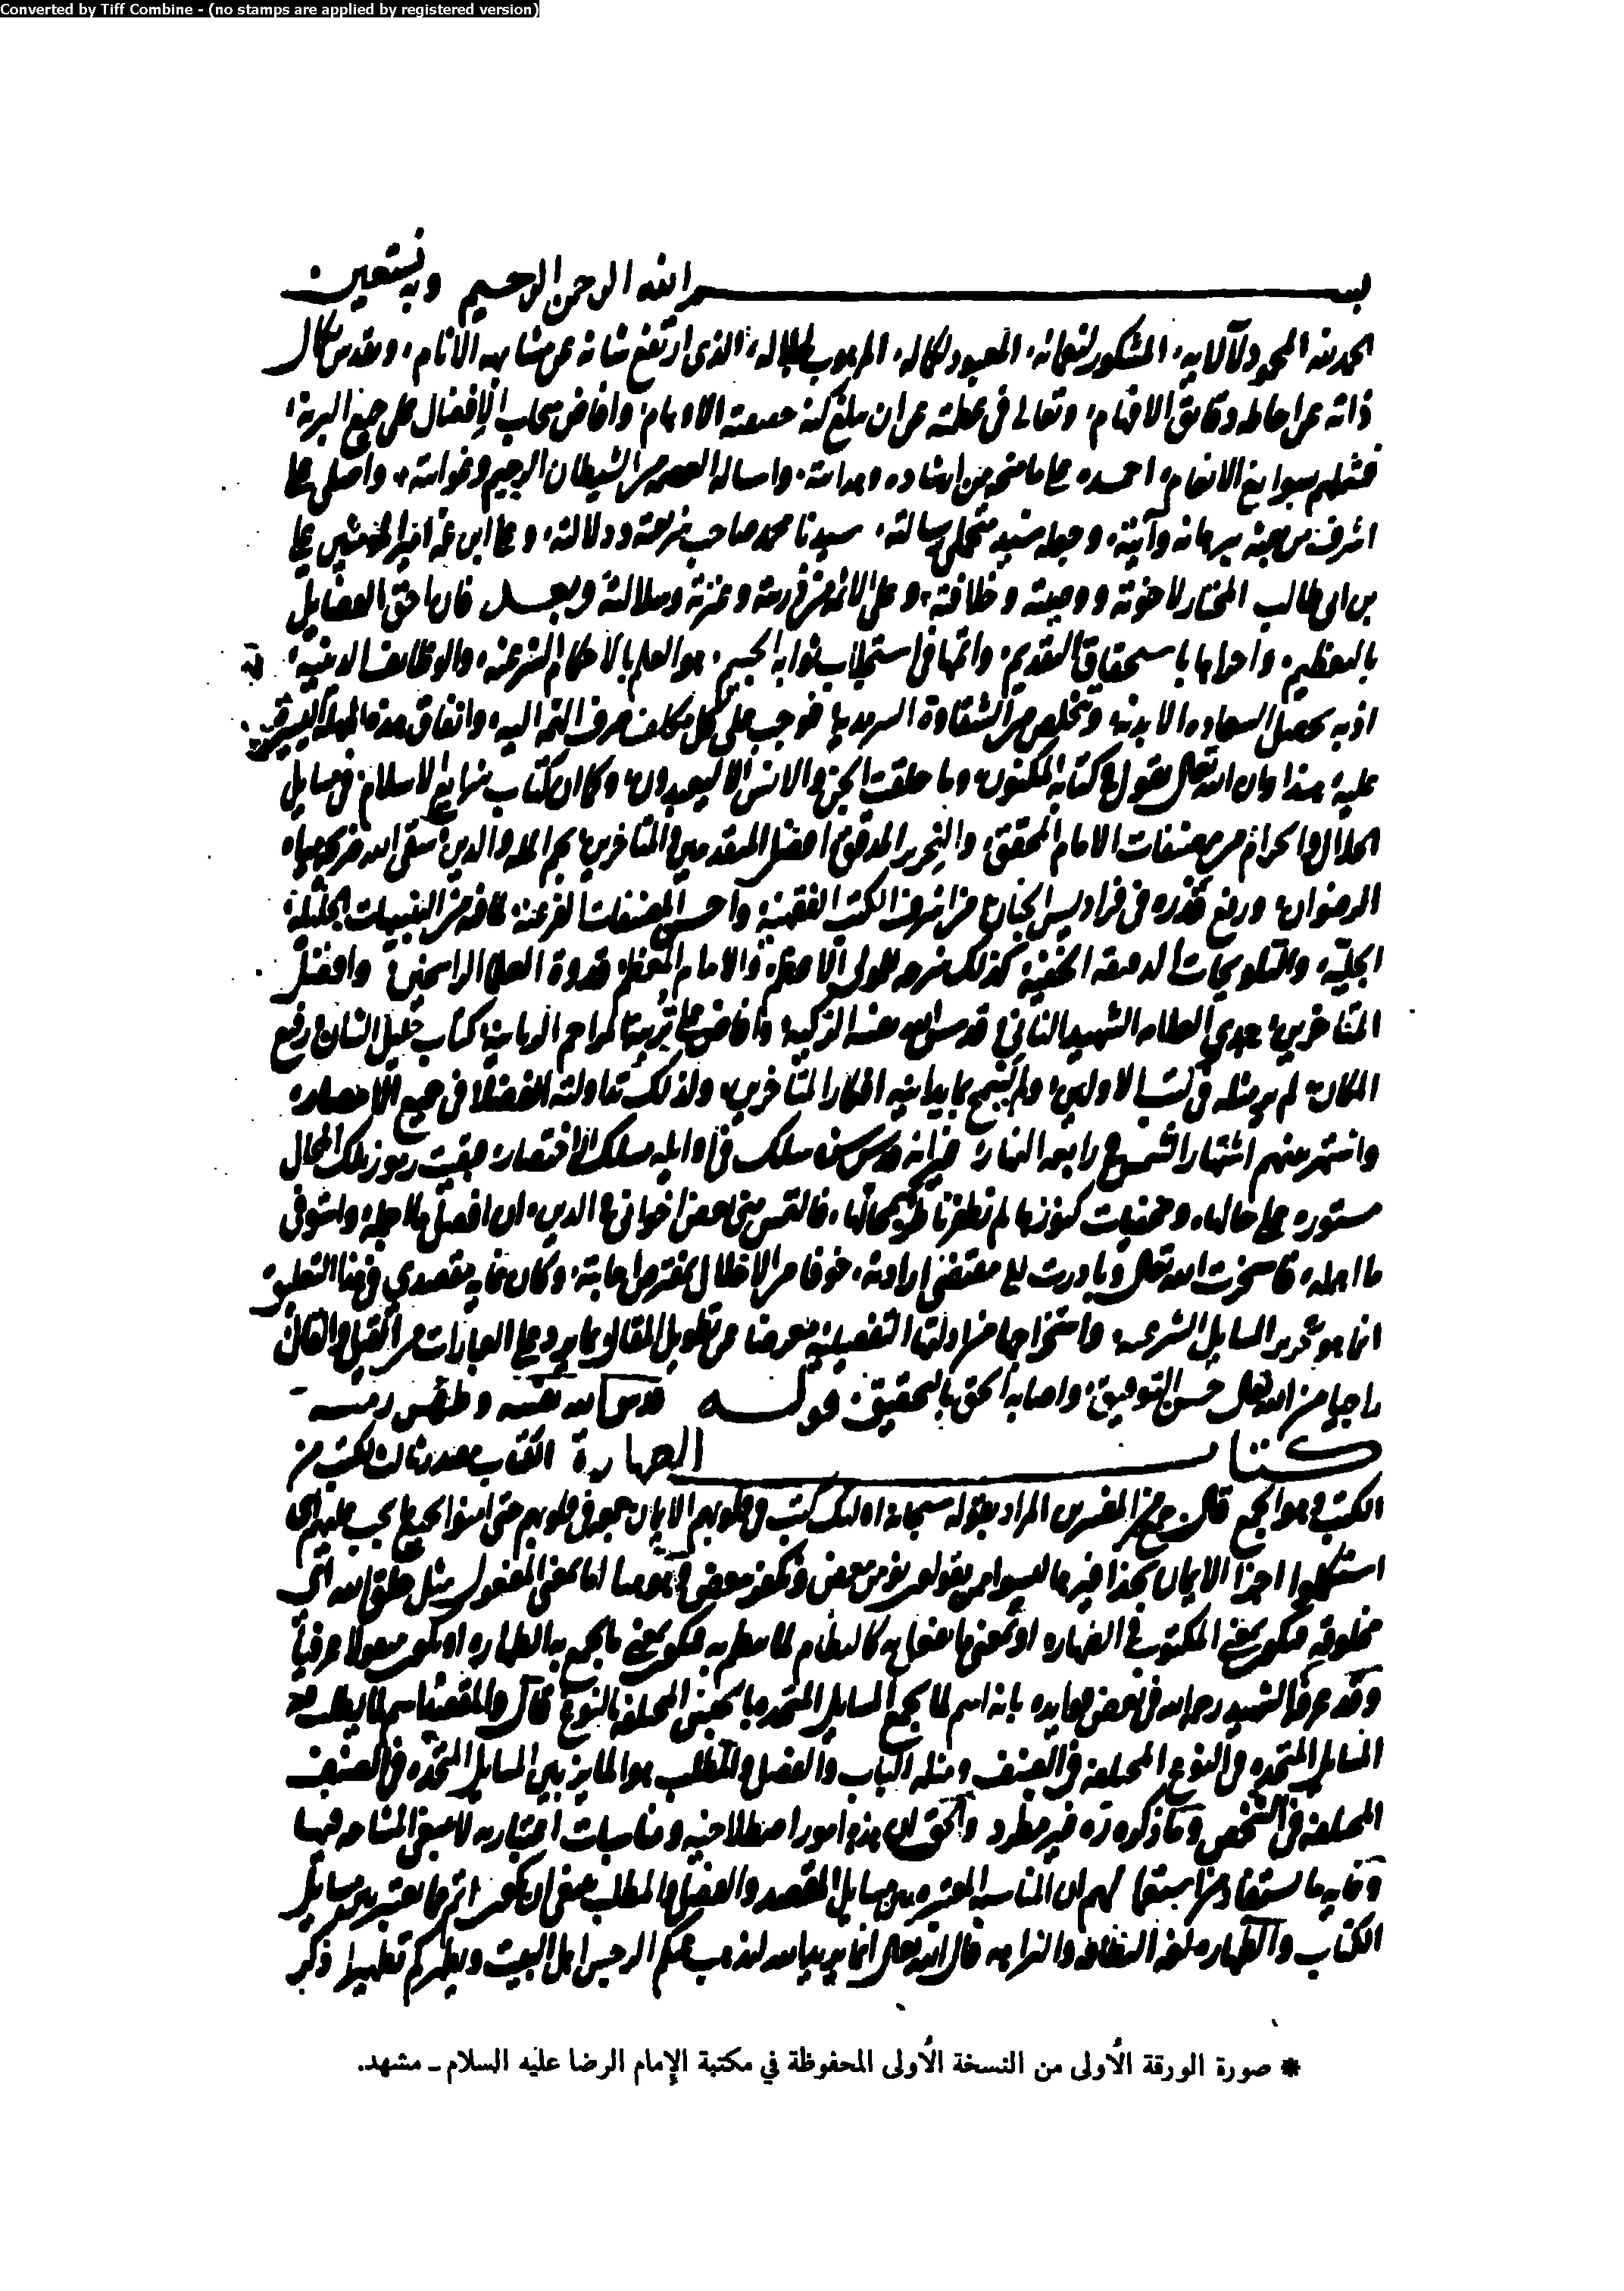 Converted by Tiff Combine - (no stamps are applied by registered version)
بسم الله الرحمن الرحيم وبه نستعين
الحمد لله المحمود لآلائه، المشكور لنعمائه، المعبود لكماله، المرهوب لجلاله، الذى ارتفع شانه عن مشابهة الانام، وتقدس بكمال
ذاته عن احاطة دقايق الافهام، وتعالى فى عظمته عن ان تبلغ كنه حقيقته الاوهام، وافاض سحاب الافضال على جميع البرية،
فشملهم سوابغ الانعام، احمده على ما منحه من ارشاده وهدايته، واساله العصمة من الشيطان الرجيم وغوايته، واصلى على
اشرف من ببرهانه وآيته، رسالته، سيدنا محمد صاحب شريعته ودلالته، وعلى ابن عمه امير المؤمنين على
بن ابى طالب المختار لاخوته ووصيته وخلافته، وعلى الائمة من ذريته وعترته وسلالته وبعد فان احق الفضايل
بالتعظيم، واحراها باستحقاق التقديم، واتمها فى استجلاب ثوابه الجسيم، هو العلم بالاحكام الشرعية، والوظايف الدينية،
اذ به تحصل السعادة الابدية، ويتخلص من الشقاوة السرمدية، فوجب على كل مكلف صرف الهمة اليه، وانفاق هذه المهلة اليسيرة
عليه، هذا وان الله تعالى يقول فى كتابه المكنون، وما خلقت الجن والانس الا ليعبدون، وكان كتاب شرايع الاسلام فى مسايل
الحلال والحرام من مصنفات الامام المحقق، والنحرير المدقق، افضل المتقدمين والمتاخرين، نجم الملة والدين، سقى الله ضريحه مياه
الرضوان، ورفع قدره فى فراديس الجنان، من اشرف الكتب الفقهية، واحسن المصنفات الفرعية، لما فيه من التنبيهات الجليلة
الجلية، والتلويحات الدقيقة الخفية، كذلك شرحه للمولى الاعظم، والامام المعظم، قدوة العلماء الراسخين، وافضل
المتاخرين، جدى العلامة الشهيد الثانى، قدس الله نفسه الزكية، وافاض على تربته المراحم الربانية، كتاب جليل الشان، رفيع
المكان، لم ير مثله فى كتب الاولين، ولم تسمح بما يدانيه افكار المتاخرين، ولذلك تداولته الفضلاء فى جميع الامصار،
واشتهر بينهم اشتهار الشمس فى رابعة النهار، غير انه قدس سره سلك فى اوايله مسلك الاختصار، فبقيت رموز تلك المحال
مستورة على حالها، ومخفيات كنوزها لم نظفر، فالتمس منى بعض اخوانى فى الدين، ان افصل ما اجمله، واستوفى
ما اهمله، فاستخرت الله تعالى وبادرت الى مقتضى ارادته، خوفا من الاخلال بمفترض اجابته، وكان غاية مقصدى فى هذا التعليق
انما هو تحرير المسايل الشرعية، واستخراجها من ادلتها التفصيلية، معرضا عن تطويل المقال بما يرد على العبارات من القيل والقال،
راجيا من الله تعالى حسن التوفيق، واصابة الحق بالتحقيق، قوله قدس الله نفسه وطهر رمسه
كتاب الطهارة الكتاب مصدر ثان لكتب من
الكتب وهو الجمع قال جمع من المفسرين المراد بقوله سبحانه اولئك كتب فى قلوبهم الايمان جمع فى قلوبهم حتى امنوا بجميع ما يجب عليهم اى
استكملوا اجزاء الايمان بحذافيرها ليسوا ممن يقولون نؤمن ببعض ونكفر ببعض وهو هنا اما بمعنى المفعول مثل خلق الله اى
مخلوقه فيكون بمعنى المكتوب فى الطهارة او بمعنى ما يفعل به كالنظام لما ينظم به فيكون بمعنى ما يجمع به الطهارة او يكون منقولا عرفيا
وقد عرفه الشهيد رحمه الله فى بعض فوايده بانه اسم لما يجمع المسايل المتحدة بالجنس المختلفة بالنوع قال والمقصد اسم لما يطلب فيه
المسايل المتحدة فى النوع المختلفة فى الصنف ومثله الباب والفصل والمطلب هو المايز بين المسايل المتحدة فى الصنف
المختلفة فى الشخص وما ذكره ره غير مطرد والحق ان هذه امور اصطلاحية ومناسبات اعتبارية لا ينبغى المشاحة فيها
وغاية ما يستفاد من استعمالهم ان المناسبة المعتبرة بين مسايل المقصد والفصل والمطلب ينبغى ان يكون اتم مما يعتبر بين مسايل
الكتاب والطهارة لغة النظافة والنزاهة قال الله تعالى انما يريد الله ليذهب عنكم الرجس اهل البيت ويطهركم تطهيرا ذكر
* صورة الورقة الأولى من النسخة الأولى المحفوظة في مكتبة الإمام الرضا عليه السلام ـ مشهد.